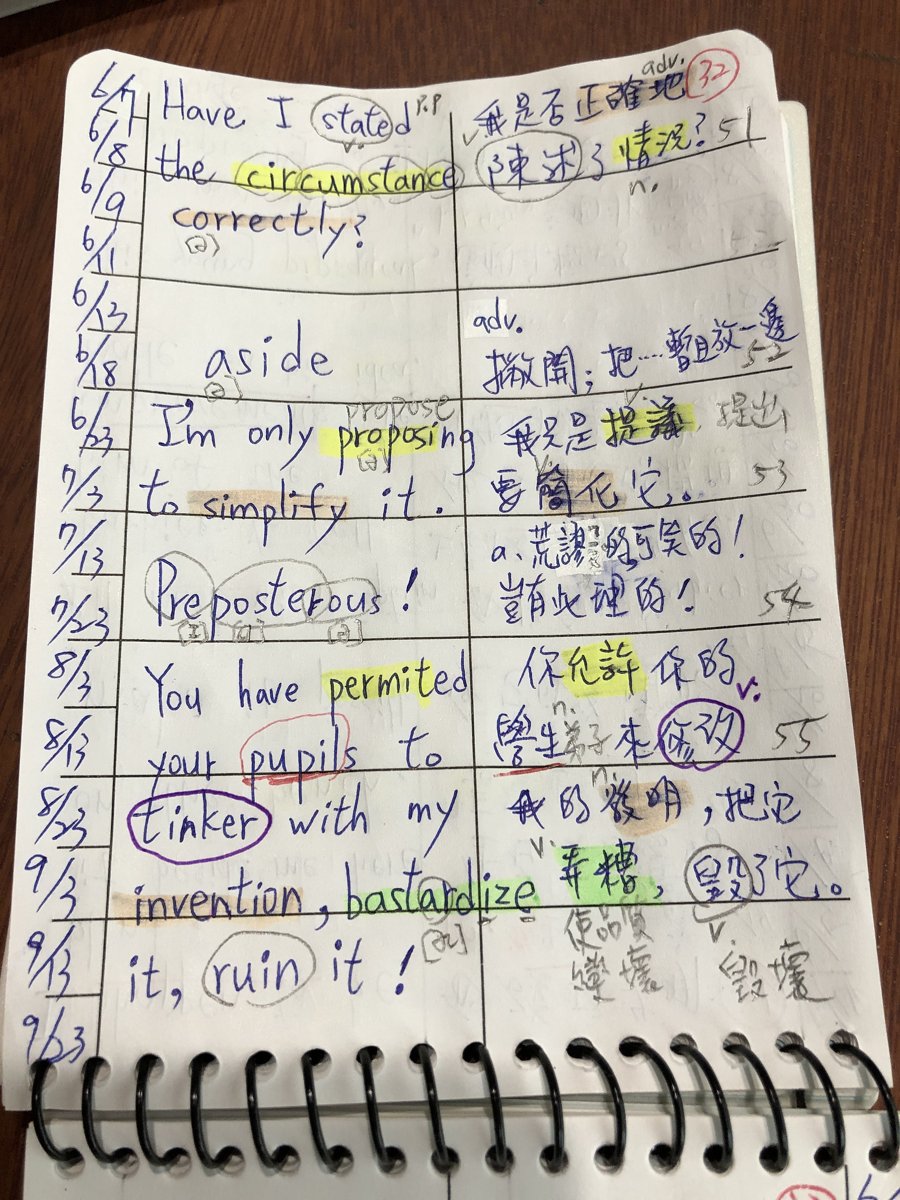 6/7
6/8
6/9
6/11
6/13
6/18
6/23
7/3
7/13
7/23
8/3
8/13
8/23
9/3
9/13
9/23
Have I stated P.P
v.
the circumstance
correctly?
[ə]
adv. 32
我是否正確地
陳述了情況? 51
n.
aside
[ə]
adv.
撇開;把....暫且放一邊
52
propose
I'm only proposing
[z]
to simplify it.
v
我只是提議 提出
v.
要簡化它。 53
Preposterous!
[ɪ] [ə]
a. 荒謬的可笑的!
豈有此理的! 54
You have permited
your pupils to
tinker with my
invention, bastardize
it, ruin it!
你允許你的
n. v.
學生弟子來修改 55
n.
我的發明,把它
v.
弄糟,毀了它。
使品質 v.
變壞 毀壞